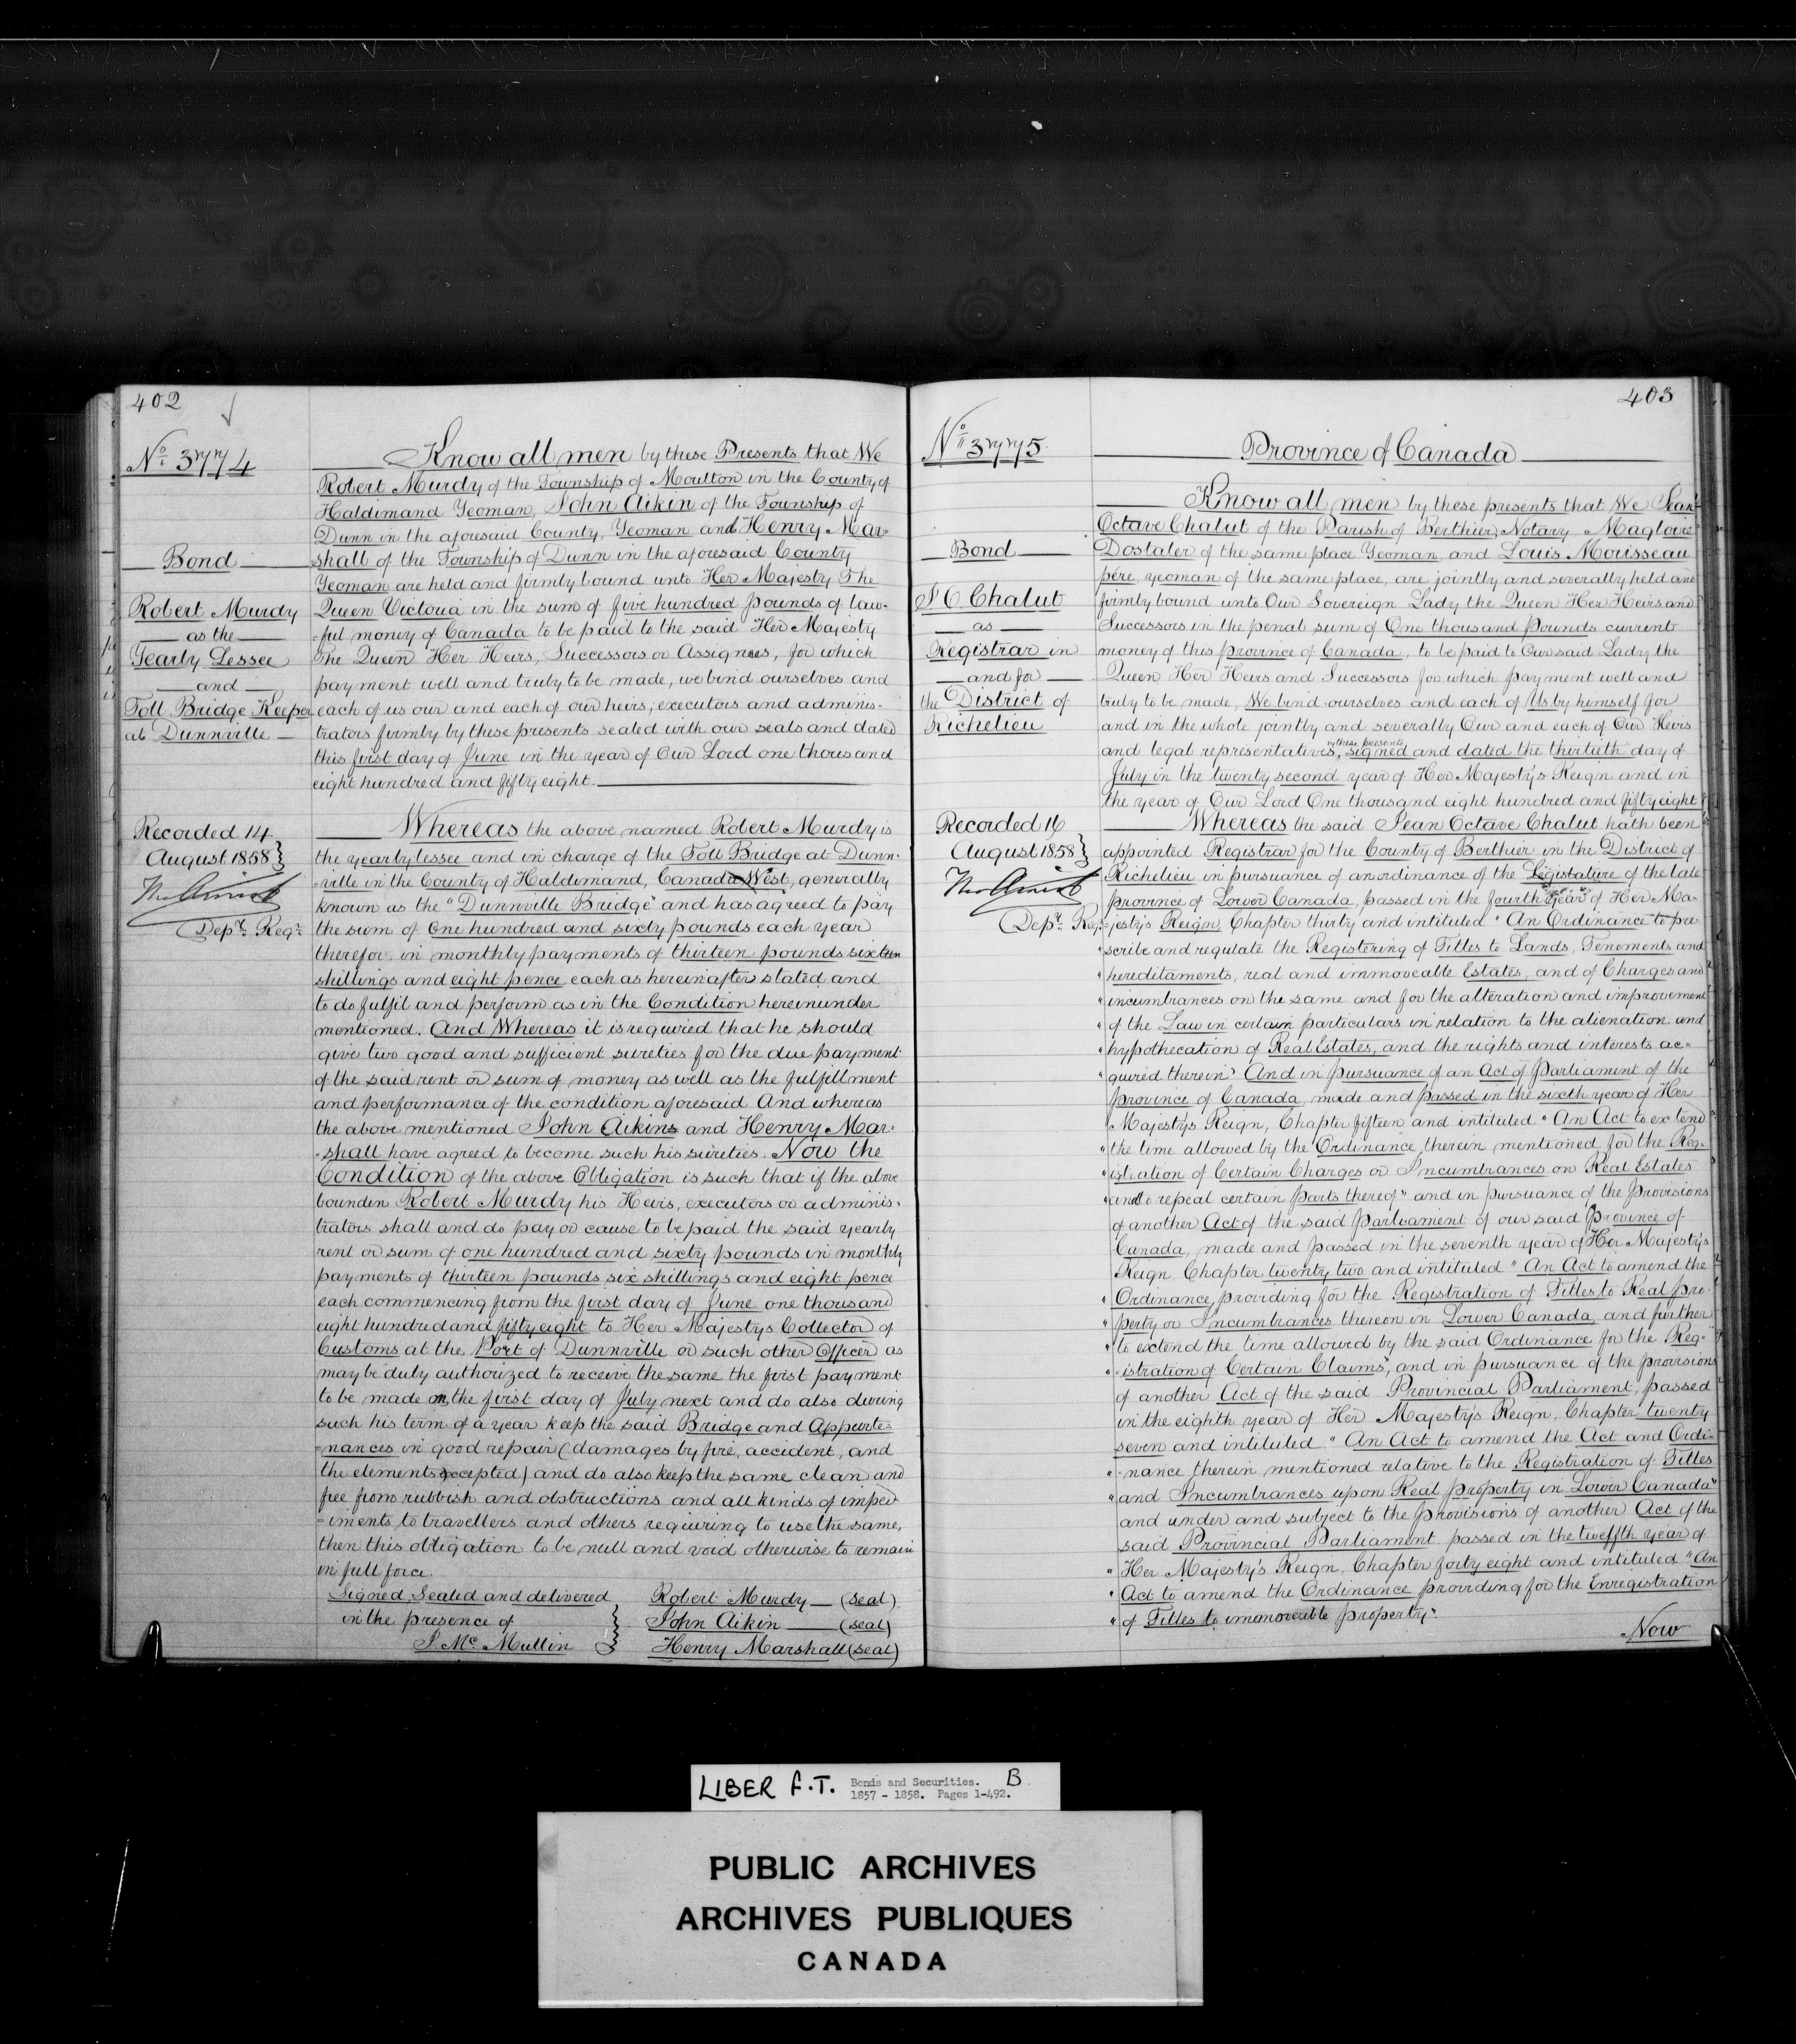 402
No. 3774
Bond
Robert Murdy
as the
Yearly Lessee
and
Toll Bridge Keeper
at Dunnville
Recorded 14
August 1858
Depy. Regr.
Know all men by these Presents that We
Robert Murdy of the Township of Moulton in the County of
Haldimand Yeoman, John Aikin of the Township of
Dunn in the aforesaid County, Yeoman and Henry Mar-
shall of the Township of Dunn in the aforesaid County
Yeoman are held and firmly bound unto Her Majesty The
Queen Victoria in the sum of five hundred pounds of law-
-ful money of Canada to be paid to the said Her Majesty
The Queen Her Heirs, Successors or Assignees, for which
payment well and truly to be made, we bind ourselves and
each of us our and each of our heirs, executors and adminis-
trators firmly by these presents sealed with our seals and dated
this first day of June in the year of Our Lord one thousand
eight hundred and fifty eight.
Whereas the above named Robert Murdy is
the yearly lessee and in charge of the Toll Bridge at Dunn-
-ville in the County of Haldimand, Canada West, generally
known as the "Dunnville Bridge" and has agreed to pay
the sum of one hundred and sixty pounds each year
therefor in monthly payments of thirteen pounds sixteen
shillings and eight pence each as hereinafter stated and
to do fulfil and perform as in the Condition hereinunder
mentioned. And Whereas it is required that he should
give two good and sufficient sureties for the due payment
of the said rent or sum of money as well as the fulfillment
and performance of the condition aforesaid And whereas
the above mentioned John Aikins and Henry Mar-
-shall have agreed to become such his sureties. Now the
Condition of the above Obligation is such that if the above
bounden Robert Murdy his Heirs, executors or adminis-
trators shall and do pay or cause to be paid the said yearly
rent or sum of one hundred and sixty pounds in monthly
payments of thirteen pounds six shillings and eight pence
each commencing from the first day of June one thousand
eight hundred and fifty eight to Her Majestys Collector of
Customs at the Port of Dunnville or such other Officer as
may be duly authorized to receive the same the first payment
to be made on the first day of July next and do also during
such his term of a year keep the said Bridge and Appurte-
-nances in good repair (damages by fire, accident, and
the elements excepted) and do also keep the same clean and
free from rubbish and obstructions and all kinds of imped-
-iments to travellers and others requiring to use the same,
then this obligation to be null and void otherwise to remain
in full force.
Signed Sealed and delivered
in the presence of
J. Mc. Mullin
Robert Murdy (seal)
John Aikin (seal)
Henry Marshall (seal)
403
No. 3775
Bond
J O Chalut
as
Registrar in
and for
the District of
Richelieu
Recorded 16
August 1858
Depy. Regr.
Province of Canada
Know all men by these presents that We Jean
Octave Chalut of the Parish of Berthier, Notary Magloire
Dostaler of the same place Yeoman, and Louis Morisseau
père, yeoman of the same place, are jointly and severally held and
firmly bound unto Our Sovereign Lady the Queen Her Heirs and
Successors in the penal sum of One thousand Pounds current
money of this province of Canada, to be paid to Our said Lady the
Queen Her Heirs and Successors for which payment well and
truly to be made, We bind ourselves and each of Us by himself for
and in the whole jointly and severally Our and each of Our Heirs
and legal representatives, by these presents signed and dated the thirtieth day of
July in the twenty second year of Her Majesty's Reign and in
the year of Our Lord One thousand eight hundred and fifty eight
Whereas the said Jean Octave Chalut hath been
appointed Registrar for the County of Berthier in the District of
Richelieu in pursuance of an ordinance of the Legislature of the late
province of Lower Canada, passed in the fourth year of Her Ma-
-jesty's Reign, Chapter thirty and intituled "An Ordinance to pre-
"scribe and regulate the Registering of Titles to Lands, Tenements and
"hereditaments, real and immoveable Estates, and of Charges and
"incumbrances on the same and for the alteration and improvement
"of the Law in certain particulars in relation to the alienation and
"hypothecation of Real Estates, and the rights and interests ac-
"quired therein" And in pursuance of an Act of Parliament of the
province of Canada, made and passed in the sixth year of Her
Majesty's Reign, Chapter fifteen and intituled "An Act to extend
"the time allowed by the Ordinance therein mentioned for the Reg-
"istration of Certain Charges or Incumbrances on Real Estates
"and to repeal certain parts thereof" and in pursuance of the provisions
of another Act of the said Parliament of our said Province of
Canada, made and passed in the seventh year of Her Majesty's
Reign Chapter twenty two and intituled "An Act to amend the
"Ordinance, providing for the Registration of Titles to Real pro-
"perty or Incumbrances thereon in Lower Canada, and further
"to extend the time allowed by the said Ordinance for the Reg-
"-istration of Certain Claims", and in pursuance of the provisions
of another Act of the said Provincial Parliament, passed
in the eighth year of Her Majesty's Reign, Chapter twenty
seven and intituled "An Act to amend the Act and Ordi-
"-nance therein mentioned relative to the Registration of Titles
"and Incumbrances upon Real property in Lower Canada"
and under and subject to the provisions of another Act of the
said Provincial Parliament passed in the twelfth year of
Her Majesty's Reign, Chapter forty eight and intituled "An
"Act to amend the Ordinance providing for the Enregistration
"of Titles to immoveable property".
Now
LIBER F.T. Bonds and Securities. B
1857 - 1858. Pages 1-492.
PUBLIC ARCHIVES
ARCHIVES PUBLIQUES
CANADA